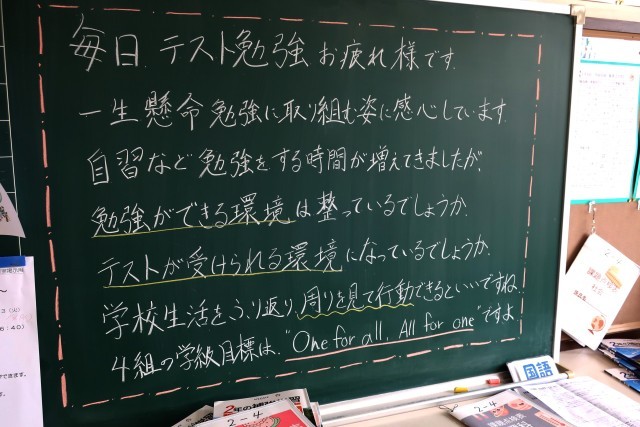 毎日、テスト勉強お疲れ様です。
一生懸命勉強に取り組む姿に感心しています。
自習など勉強をする時間が増えてきましたが、
勉強ができる環境は整っているでしょうか。
テストが受けられる環境になっているでしょうか。
学校生活をふり返り、周りを見て行動できるといいですね。
4組の学級目標は、"One for all, All for one"ですよ
国語
2-4
2-4
2-4